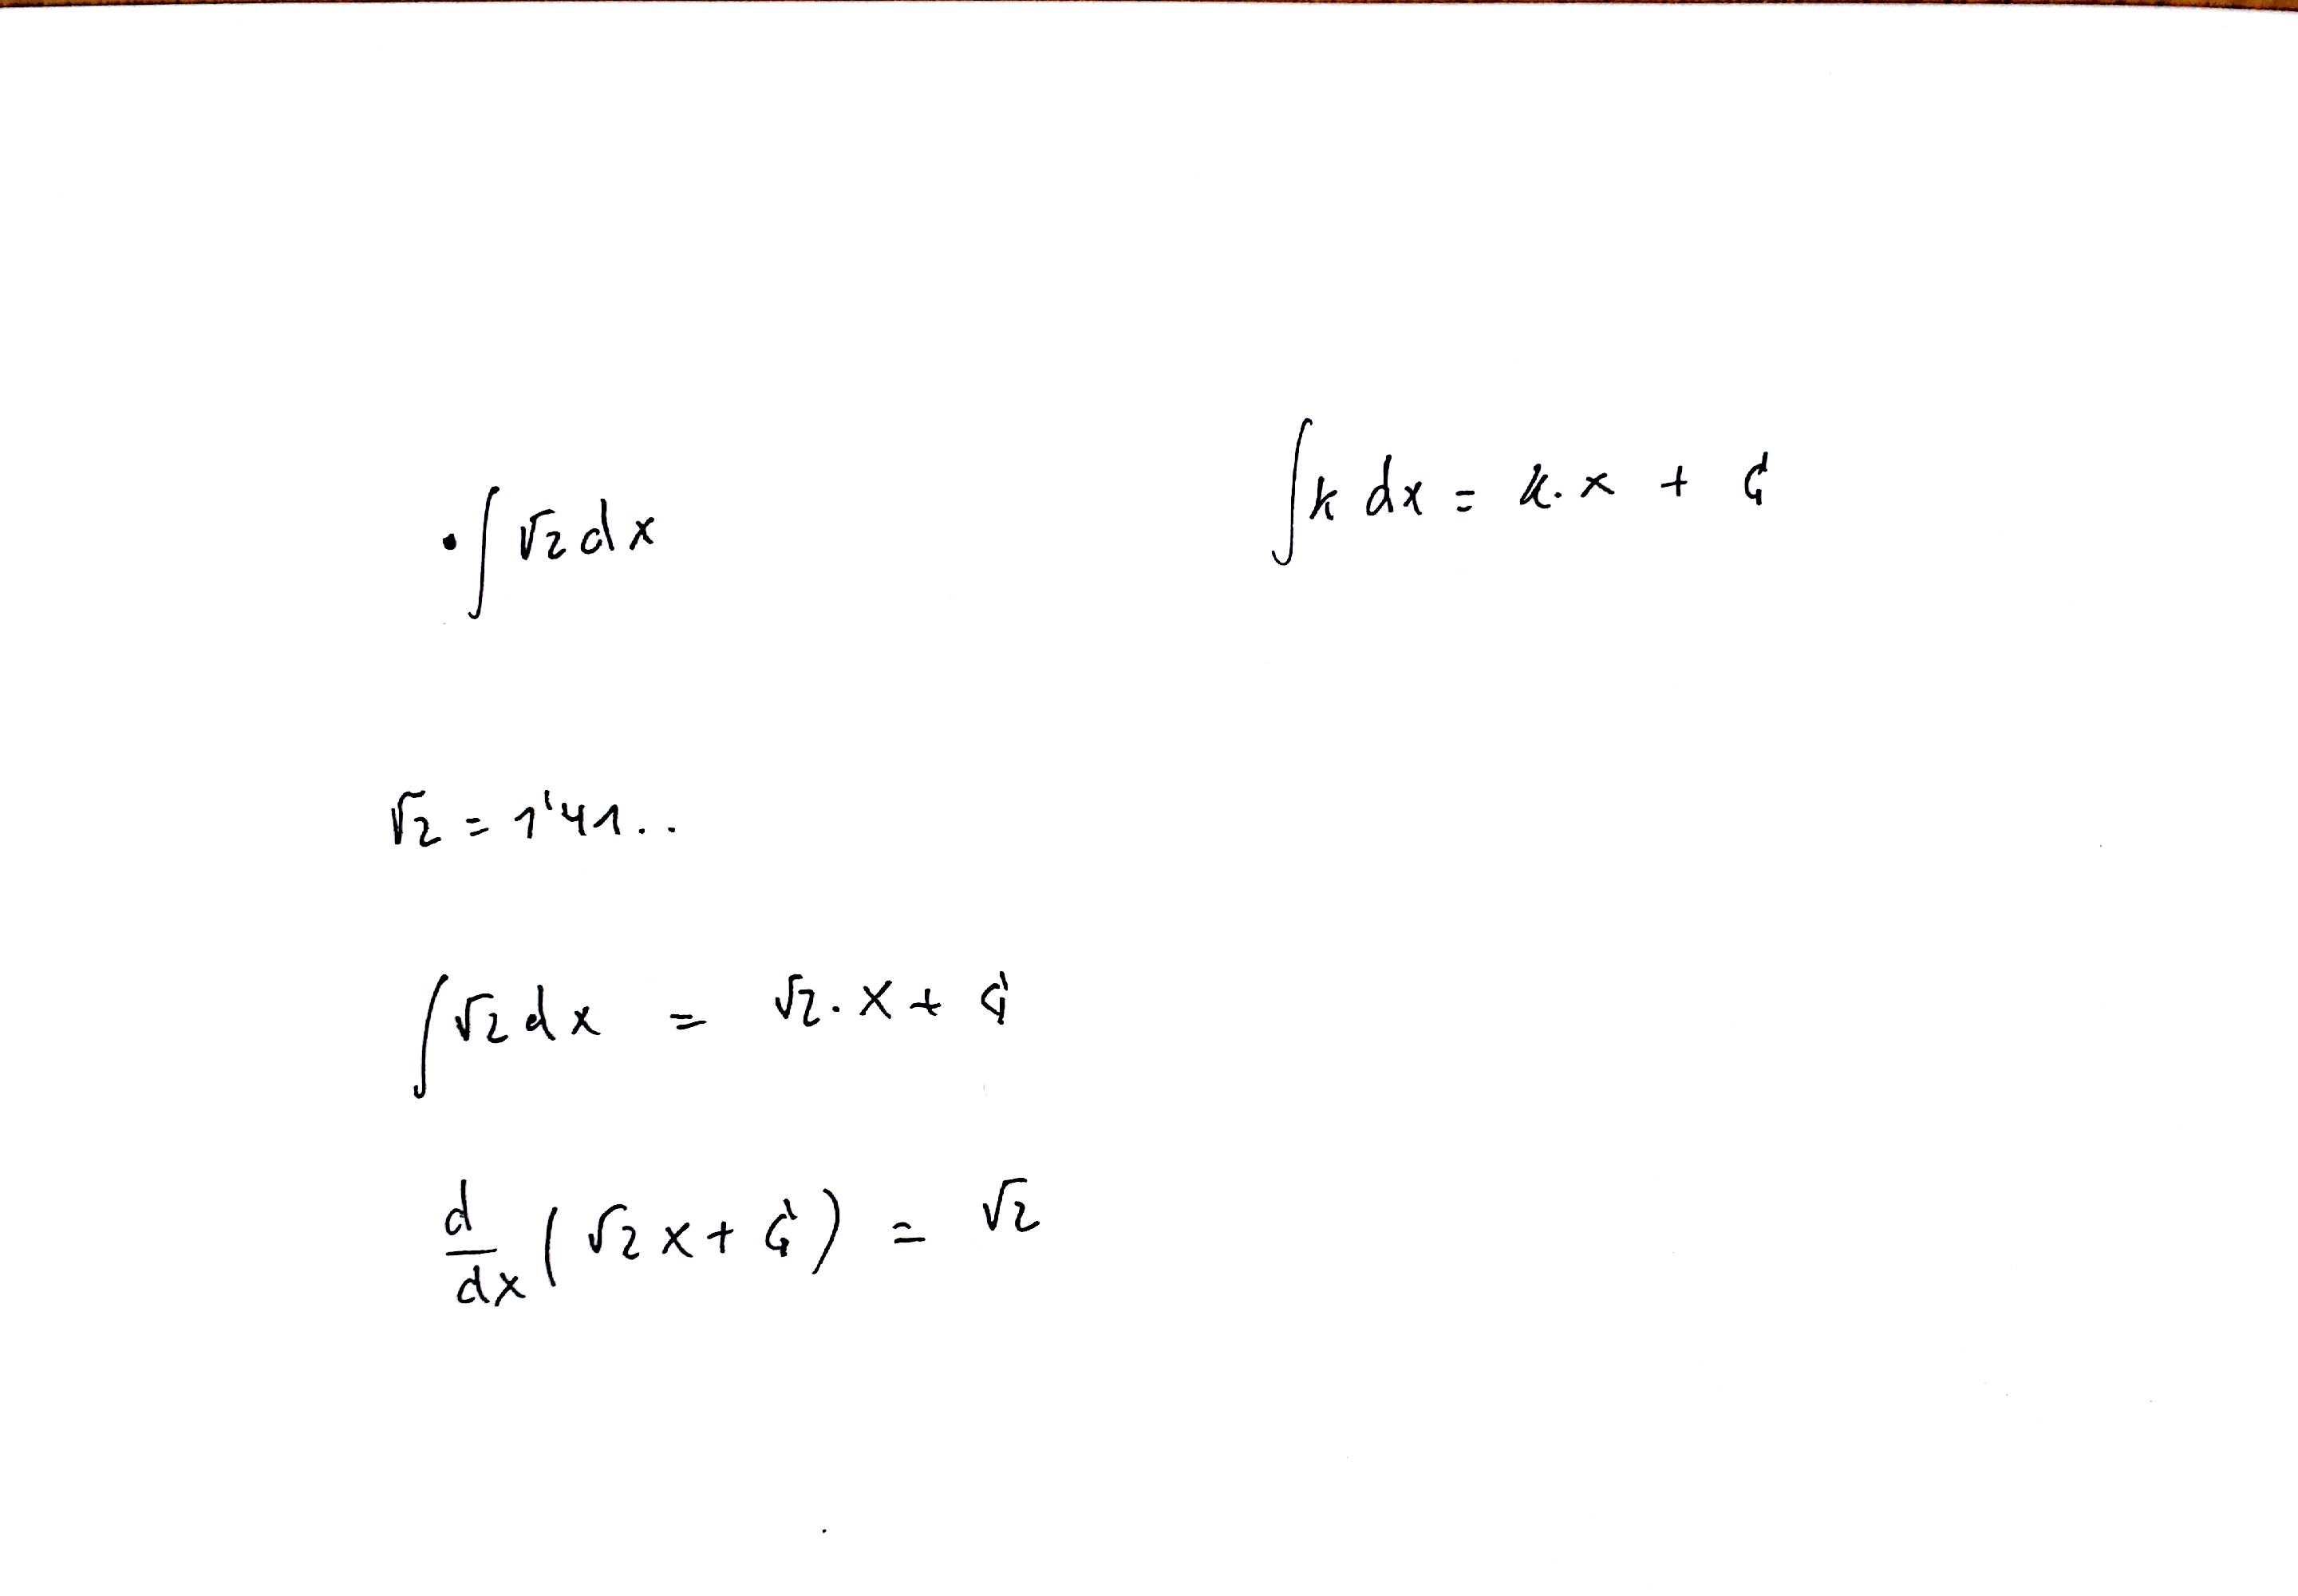 • ∫ √2 dx
∫ k dx = k · x + C
√2 = 1'41..
∫ √2 dx = √2 · x + C
d/dx ( √2 x + C ) = √2